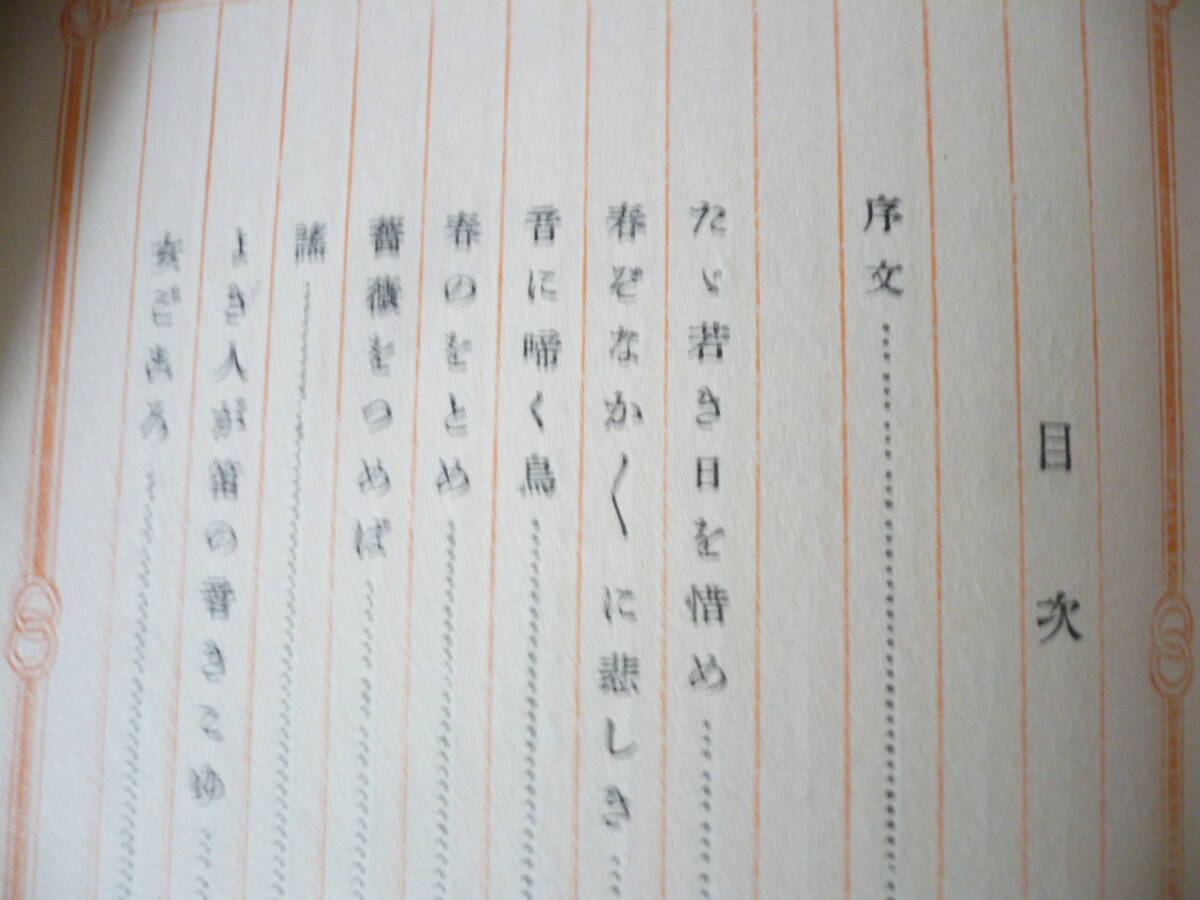 目次
序文
たゞ若き日を惜め
春ぞなか〱に悲しき
音に啼く鳥
春のをとめ
薔薇をつめば
謡
よき人が笛の音きこゆ